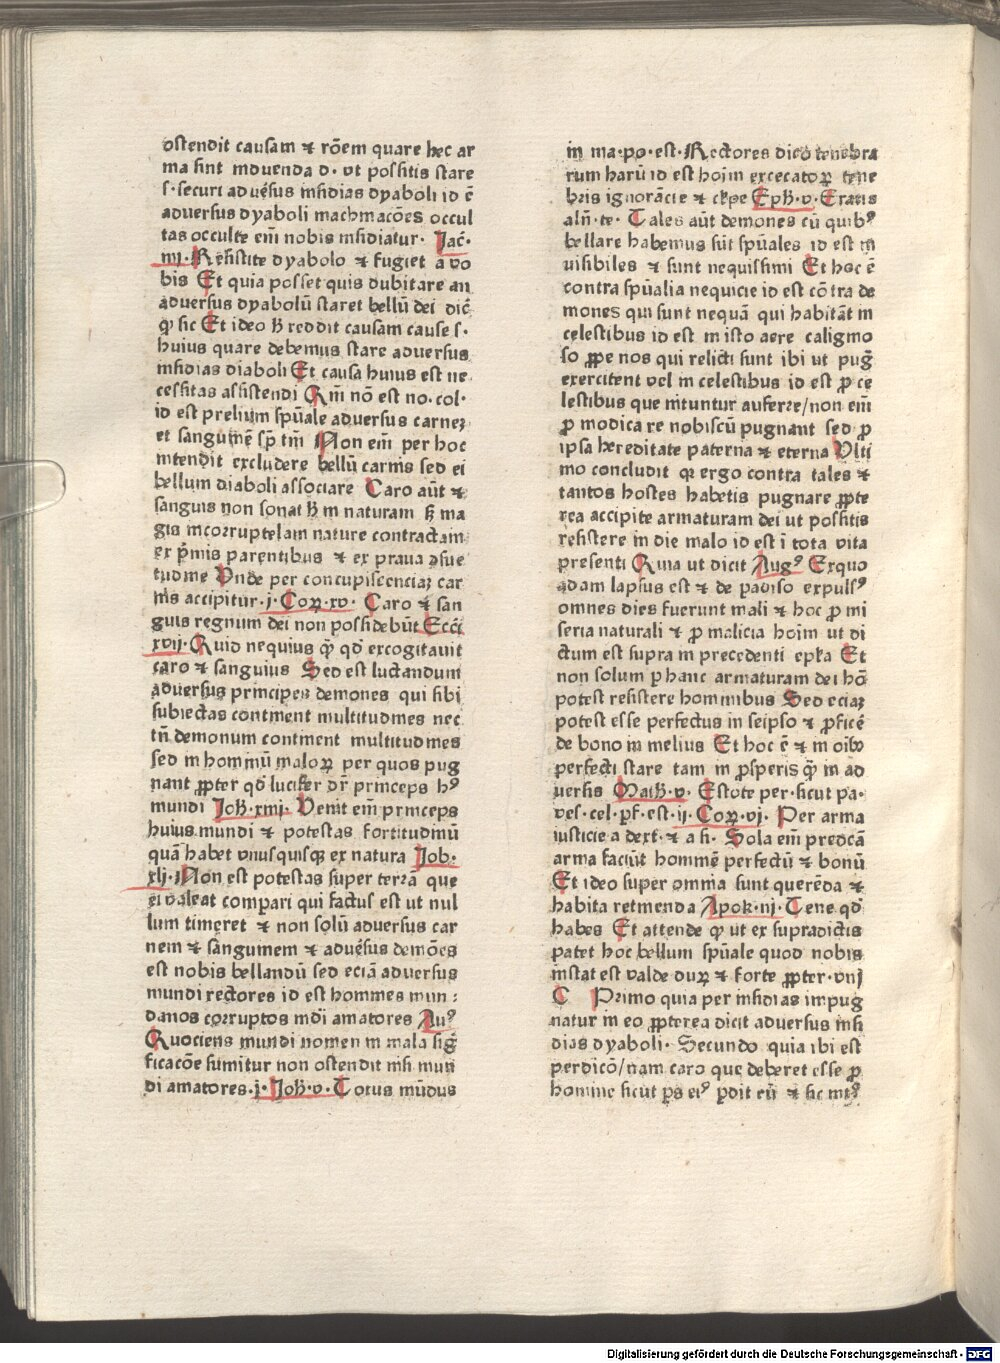 ostendit causam ⁊ rõem quare hec ar
ma sint induenda d· vt possitis stare
s· securi aduẽsus insidias dyaboli id ẽ
aduersus dyaboli machinacões occul
tas occulte eni̅ nobis insidiatur· Jac̃·
iiij· Resistite dyabolo ⁊ fugiet a vo
bis Et quia posset quis dubitare an
aduersus dyabolũ staret bellũ dei dic̃
ꝙ sic Et ideo h̃ reddit causam cause s·
huius quare debemus stare aduersus
insidias diaboli Et causa huius est ne
cessitas assistendi Qm̃ nõ est no· col·
id est prelium spũale aduersus carneꝫ
et sanguinẽ sp̃ tm̃ Non em̃ per hoc
intendit excludere bellũ carnis sed ei
bellum diaboli associare Caro aũt ⁊
sanguis non sonat h̃ in naturam sꝫ ma
gis in corruptelam nature contractam
ex p̃mis parentibus ⁊ ex praua ↄsue
tudine Vnde per concupiscenciaꝫ car
nis accipitur· j· Coꝝ· xv· Caro ⁊ san
guis regnum dei non possidebũt Ecc̃i
xvij· Quid nequius ꝙ̃ qd̃ excogitauit
caro ⁊ sanguius Sed est luctandum
aduersus principes demones qui sibi
subiectas continent multitudines nec
tñ demonum continent multitudines
sed in hominũ maloꝝ per quos pug
nant ꝓpter qd̃ lucifer dr̃ princeps hꝰ
mundi Joh̃· xiiij· Venit em̃ princeps
huius mundi ⁊ potestas fortitudinũ
quã habet vnusquisqꝫ ex natura Job·
xlj· Non est potestas super terrã que
ei valeat compari qui factus est ut nul
lum timeret ⁊ non solũ aduersus car
nem ⁊ sanguinem ⁊ aduẽsus demões
est nobis bellandũ sed eciã aduersus
mundi rectores id est homines mun:
danos corruptos mdi amatores Auꝰ
Quociens mundi nomen in mala sig̃
ficacõe sumitur non ostendit nisi mun
di amatores· j· Joh̃· v· Totus mũdus
in ma·po·est· Rectores dico tenebra
rum harũ id est hoim excecatoꝝ tene
bris ignorãcie ⁊ Eph̃· v· Eratis
aliñ· te· Tales aũt demones cũ quibꝰ
bellare habemus sũt spũales id est in
uisibiles ⁊ sunt nequissimi Et hoc ẽ
contra spũalia nequicie id est cõtra de
mones qui sunt nequã qui habitãt in
celestibus id est in isto aere caligino
so ꝓpe nos qui relicti sunt ibi ut pug̃
exercitent vel in celestibus id est ꝓ ce
lestibus que nituntur auferre/non em̃
ꝓ modica re nobiscũ pugnant sed ꝓ
ipsa hereditate paterna ⁊ eterna Vlti
mo concludit qr ergo contra tales ⁊
tantos hostes habetis pugnare ꝓpte
rea accipite armaturam dei ut possitis
resistere in die malo id est ĩ tota vita
presenti Quia ut dicit Augꝰ Exquo
adam lapsus est ⁊ de padiso expulsꝰ
omnes dies fuerunt mali ⁊ hoc ꝓ mi
seria naturali ⁊ ꝓ malicia hoim ut di
ctum est supra in precedenti ep̃la Et
non solum ꝑ hanc armaturam dei hõ
potest resistere hominibus Sed eciaꝫ
potest esse perfectus in seipso ⁊ ꝓficẽ
de bono in melius Et hoc ẽ ⁊ in oib9
perfecti stare tam in ꝓsperis ꝙ̃ in ad
uersis Math̃· v· Estote per·sicut pa·
ves·cel·pf·est· ij· Coꝝ· vj· Per arma
iusticie a dext·⁊ a si· Sola em̃ predcã
arma faciũt hominẽ perfectũ ⁊ bonũ
Et ideo super omnia sunt querẽda ⁊
habita retinenda Apok· iij· Tene qd̃
habes Et attende ꝙ ut ex supradictis
patet hoc bellum spũale quod nobis
instat est valde duꝝ ⁊ forte ꝓpter·viij
C Primo quia per insidias impug
natur in eo ꝓpterea dicit aduersus insi
dias dyaboli· Secundo quia ibi est
perdicõ/nam caro que deberet esse ꝓ
homine sicut ps eiꝰ pdit eũ ⁊ sic